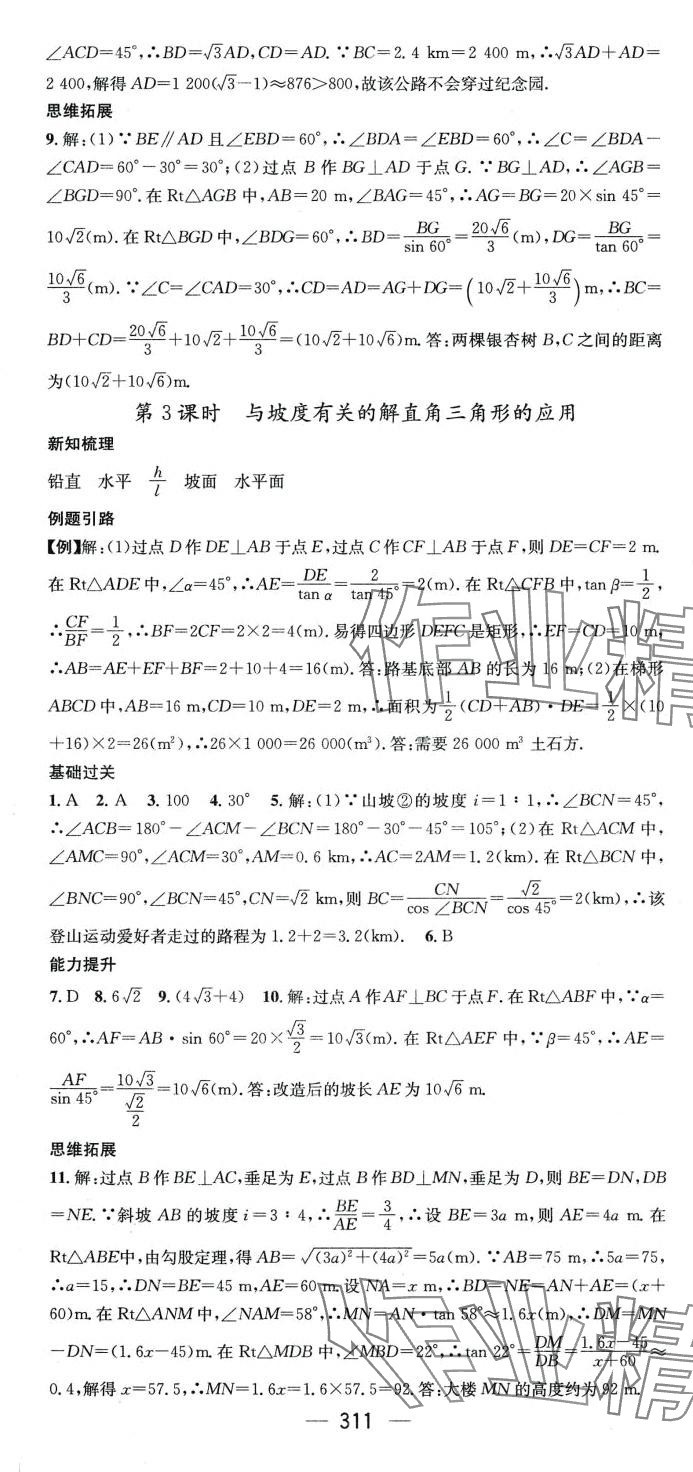 ∠ACD=45°,∴BD=√3AD,CD=AD.∵BC=2.4 km=2 400 m,∴√3AD+AD=
2 400,解得 AD=1 200(√3-1)≈876>800,故该公路不会穿过纪念园.
思维拓展
9.解:(1)∵BE∥AD 且∠EBD=60°,∴∠BDA=∠EBD=60°,∴∠C=∠BDA-
∠CAD=60°-30°=30°;(2)过点 B 作 BG⊥AD 于点 G.∵BG⊥AD,∴∠AGB=
∠BGD=90°.在 Rt△AGB 中,AB=20 m,∠BAG=45°,∴AG=BG=20×sin 45°=
10√2(m).在 Rt△BGD 中,∠BDG=60°,∴BD=BG/sin 60°=20√6/3(m),DG=BG/tan 60°=
10√6/3(m).∵∠C=∠CAD=30°,∴CD=AD=AG+DG=(10√2+10√6/3)m,∴BC=
BD+CD=20√6/3+10√2+10√6/3=(10√2+10√6)m.答:两棵银杏树 B,C 之间的距离
为(10√2+10√6)m.
第 3 课时 与坡度有关的解直角三角形的应用
新知梳理
铅直 水平 h/l 坡面 水平面
例题引路
【例】解:(1)过点 D 作 DE⊥AB 于点 E,过点 C 作 CF⊥AB 于点 F,则 DE=CF=2 m.
在 Rt△ADE 中,∠α=45°,∴AE=DE/tan α=2/tan 45°=2(m).在 Rt△CFB 中,tan β=1/2,
∴CF/BF=1/2,∴BF=2CF=2×2=4(m).易得四边形 DEFC 是矩形,∴EF=CD=10 m,
∴AB=AE+EF+BF=2+10+4=16(m).答:路基底部 AB 的长为 16 m;(2)在梯形
ABCD 中,AB=16 m,CD=10 m,DE=2 m,∴面积为1/2(CD+AB)·DE=1/2×(10
+16)×2=26(m²),∴26×1 000=26 000(m³).答:需要 26 000 m³ 土石方.
基础过关
1.A 2.A 3.100 4.30° 5.解:(1)∵山坡②的坡度 i=1∶1,∴∠BCN=45°,
∴∠ACB=180°-∠ACM-∠BCN=180°-30°-45°=105°;(2)在 Rt△ACM 中,
∠AMC=90°,∠ACM=30°,AM=0.6 km,∴AC=2AM=1.2(km).在 Rt△BCN 中,
∠BNC=90°,∠BCN=45°,CN=√2 km,则 BC=CN/cos ∠BCN=√2/cos 45°=2(km),∴该
登山运动爱好者走过的路程为 1.2+2=3.2(km). 6.B
能力提升
7.D 8.6√2 9.(4√3+4) 10.解:过点 A 作 AF⊥BC 于点 F.在 Rt△ABF 中,∵α=
60°,∴AF=AB·sin 60°=20×√3/2=10√3(m).在 Rt△AEF 中,∵β=45°,∴AE=
AF/sin 45°=10√3/(√2/2)=10√6(m).答:改造后的坡长 AE 为 10√6 m.
思维拓展
11.解:过点 B 作 BE⊥AC,垂足为 E,过点 B 作 BD⊥MN,垂足为 D,则 BE=DN,DB
=NE.∵斜坡 AB 的坡度 i=3∶4,∴BE/AE=3/4,∴设 BE=3a m,则 AE=4a m.在
Rt△ABE中,由勾股定理,得 AB=√((3a)²+(4a)²)=5a(m).∵AB=75 m,∴5a=75,
∴a=15,∴DN=BE=45 m,AE=60 m.设 NA=x m,∴BD=NE=AN+AE=(x+
60)m.在 Rt△ANM 中,∠NAM=58°,∴MN=AN·tan 58°≈1.6x(m),∴DM=MN
-DN=(1.6x-45)m.在 Rt△MDB 中,∠MBD=22°,∴tan 22°=DM/DB=(1.6x-45)/(x+60)≈
0.4,解得 x=57.5,∴MN=1.6x=1.6×57.5=92.答:大楼 MN 的高度约为 92 m.
— 311 —
作业精
作业精